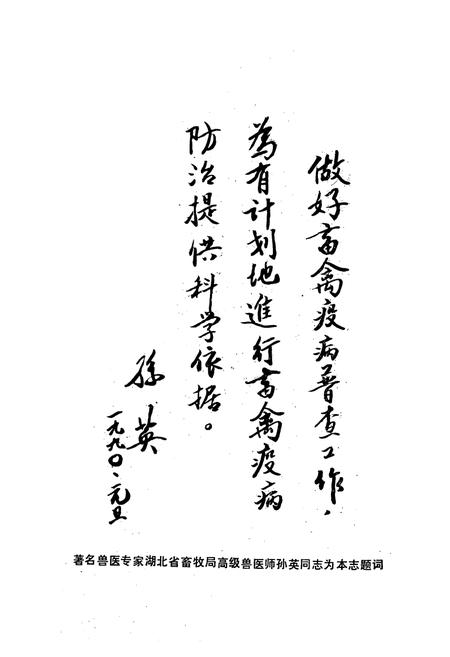 做好畜禽疫病普查工作，
為有计划地進行畜禽疫病
防治提供科学依据。
孫英
一九九〇、元旦
著名兽医专家湖北省畜牧局高级兽医师孙英同志为本志题词